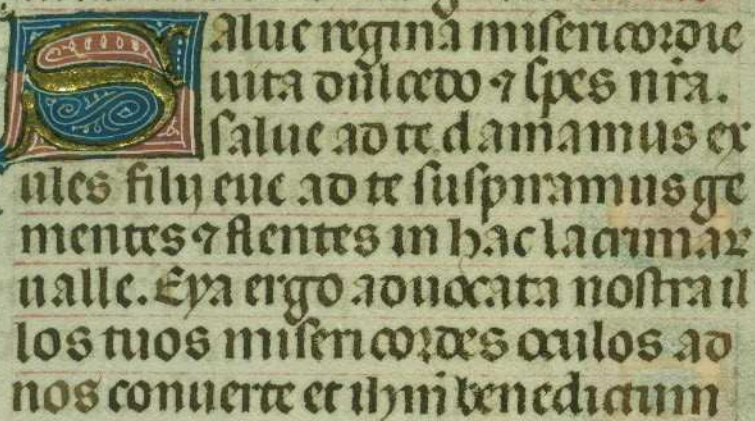 Salue regina misericordie
uita dulcedo ⁊ spes nr̃a.
salue ad te clamamus ex
ules filij eue ad te suspiramus ge
mentes ⁊ flentes in hac lacrimaꝝ
ualle. Eya ergo aduocata nostra il
los tuos misericordes oculos ad
nos conuerte et ihm̃ benedictum